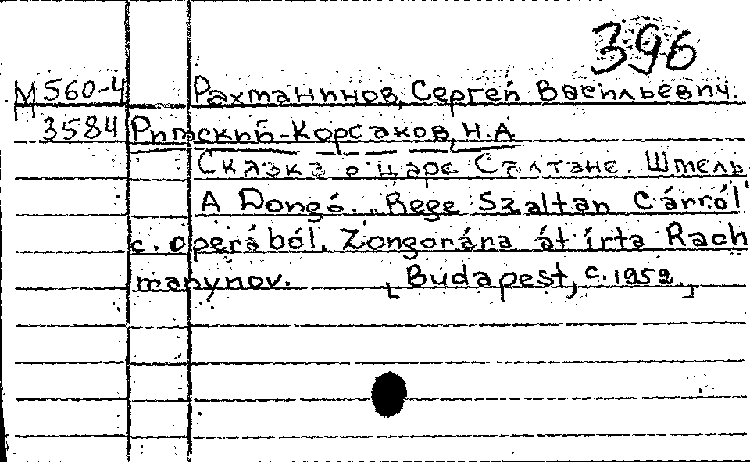 396
М560-4 Рахманинов, Сергей Васильевич.
3584 Римский-Корсаков, Н.А
Сказка о царе Салтане. Шмель
A Dongó. Rege Szaltan Cárról
c. operából. Zongorána átírta Rach
manynov. [Budapest, c.1952.]